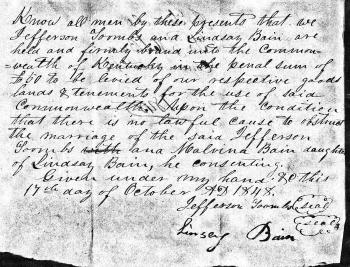 Know all men by these presents that we
Jefferson Toombs and Lindsay Bain are
held and firmly bound unto the Common-
wealth of Kentucky in the penal sum of
£50 to be levied of our respective goods
lands & tenements for the use of said
Commonwealth upon the condition
that there is no lawful cause to obstruct
the marriage of the said Jefferson
Toombs and Malvina Bain daughter
of Lindsay Bain, he consenting.
Given under my hand & this
17th day of October AD 1848.
Jefferson Toombs Seal
Linsey Bain Seal